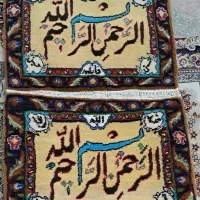 بسم الله
الرحمن الرحيم
الله
بسم الله
الرحمن الرحيم